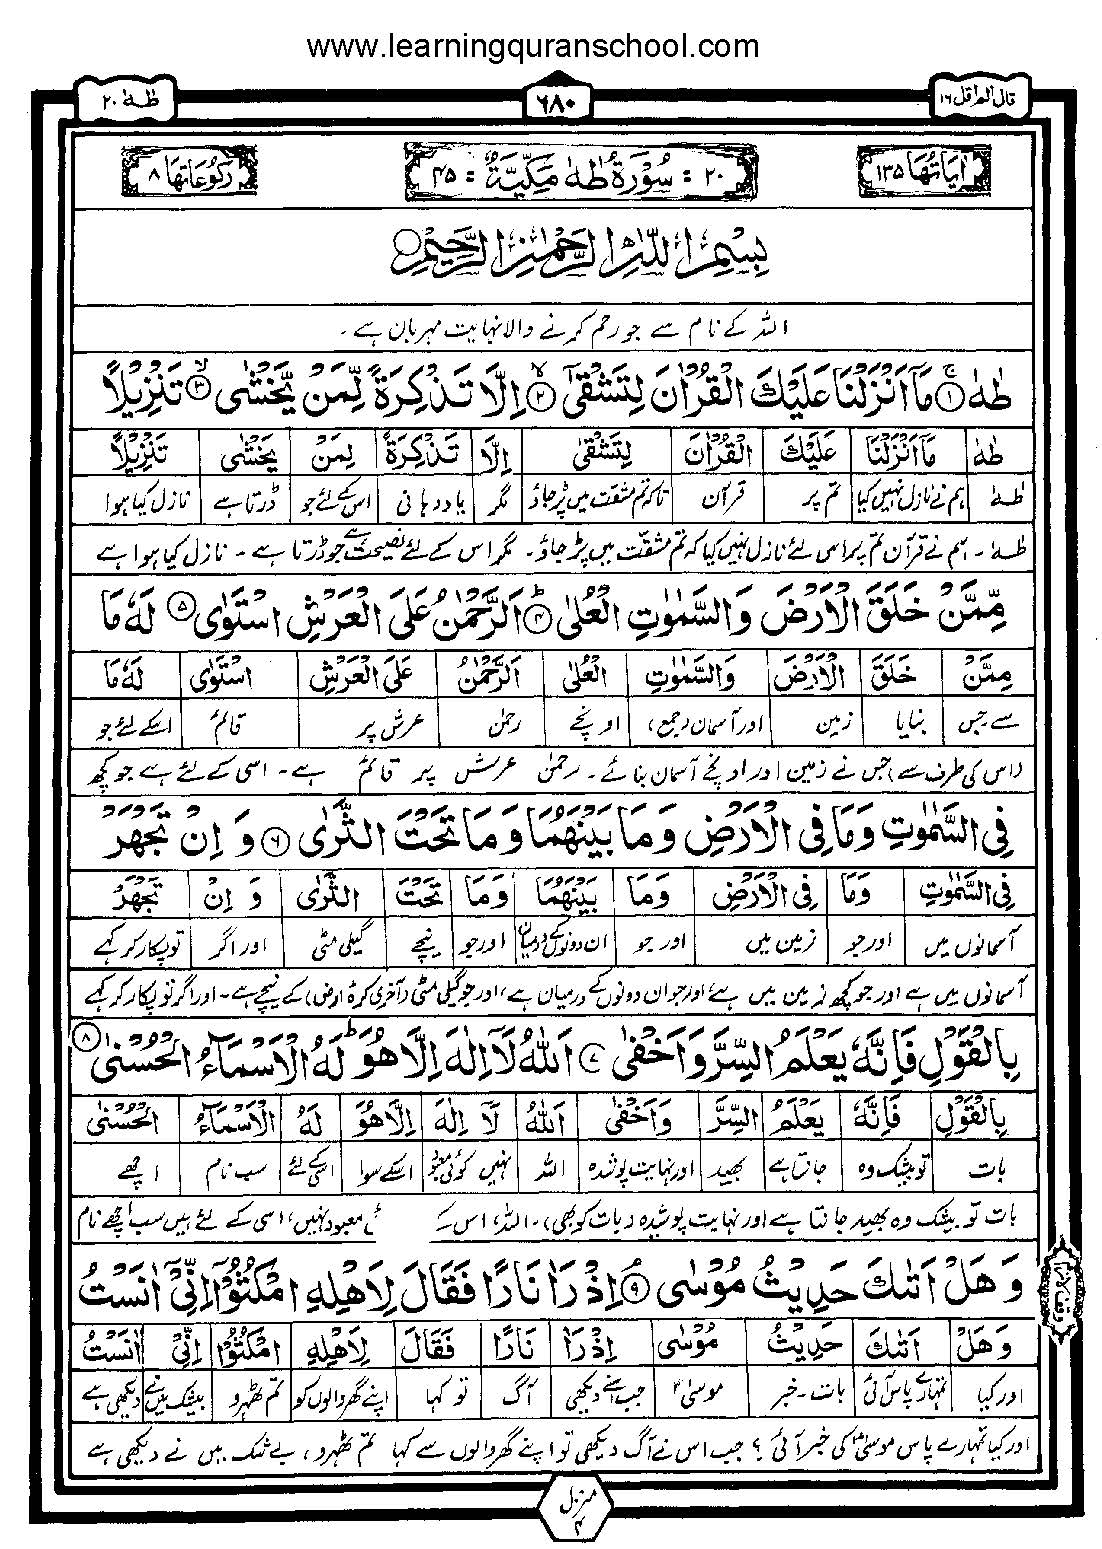 www.learningquranschool.com
قال الم اقل ۱۶
۶۸۰
طٰهٰ ۲۰
اٰیَاتُهَا ۱۳۵
۲۰ = سُوْرَةُ طٰهٰ مَكِّیَّةٌ = ۴۵
رُكُوْعَاتُهَا ۸
بِسْمِ اللّٰهِ الرَّحْمٰنِ الرَّحِیْمِ
اللہ کے نام سے جو رحم کرنے والا نہایت مہربان ہے ۔
طٰهٰ ۱ مَاۤ اَنْزَلْنَا عَلَیْكَ الْقُرْاٰنَ لِتَشْقٰۤی ۲ اِلَّا تَذْكِرَةً لِّمَنْ یَّخْشٰی ۳ تَنْزِیْلًا
طٰهٰ مَاۤ اَنْزَلْنَا عَلَیْكَ الْقُرْاٰنَ لِتَشْقٰی اِلَّا تَذْكِرَةً لِمَنْ یَخْشٰی تَنْزِیْلًا
طٰہٰ ہم نے نازل نہیں کیا تم پر قرآن تاکہ تم مشقت میں پڑ جاؤ مگر یاد دہانی اس کے لئے جو ڈرتا ہے نازل کیا ہوا
طٰہٰ ۔ ہم نے قرآن تم پر اس لئے نازل نہیں کیا کہ تم مشقت میں پڑ جاؤ۔ مگر اس کے لئے نصیحت ہے جو ڈرتا ہے ۔ نازل کیا ہوا ہے
مِّمَّنْ خَلَقَ الْاَرْضَ وَالسَّمٰوٰتِ الْعُلٰی ۴ اَلرَّحْمٰنُ عَلَی الْعَرْشِ اسْتَوٰی ۵ لَهٗ مَا
مِمَّنْ خَلَقَ الْاَرْضَ وَالسَّمٰوٰتِ الْعُلٰی اَلرَّحْمٰنُ عَلَی الْعَرْشِ اسْتَوٰی لَهٗ مَا
سے جس بنایا زمین اور آسمان (جمع) اونچے رحمٰن عرش پر قائم اسکے لئے جو
(اس کی طرف سے) جس نے زمین اور اونچے آسمان بنائے ۔ رحمٰن عرش پر قائم ہے ۔ اسی کے لئے ہے جو کچھ
فِی السَّمٰوٰتِ وَمَا فِی الْاَرْضِ وَمَا بَیْنَهُمَا وَمَا تَحْتَ الثَّرٰی ۶ وَ اِنْ تَجْهَرْ
فِی السَّمٰوٰتِ وَمَا فِی الْاَرْضِ وَمَا بَیْنَهُمَا وَمَا تَحْتَ الثَّرٰی وَ اِنْ تَجْهَرْ
آسمانوں میں اور جو زمین میں اور جو ان دونوں کے درمیان اور جو نیچے گیلی مٹی اور اگر تو پکار کر کہے
آسمانوں میں ہے اور جو کچھ زمین میں ہے، اور جو ان دونوں کے درمیان ہے، اور جو گیلی مٹی (آخری کرۂ ارض) کے نیچے ہے۔ اور اگر تو پکار کر کہے
بِالْقَوْلِ فَاِنَّهٗ یَعْلَمُ السِّرَّ وَاَخْفٰی ۷ اَللّٰهُ لَاۤ اِلٰهَ اِلَّا هُوَ لَهُ الْاَسْمَآءُ الْحُسْنٰی ۸
بِالْقَوْلِ فَاِنَّهٗ یَعْلَمُ السِّرَّ وَاَخْفٰی اَللّٰهُ لَاۤ اِلٰهَ اِلَّا هُوَ لَهُ الْاَسْمَآءُ الْحُسْنٰی
بات تو بیشک وہ جانتا ہے بھید اور نہایت پوشیدہ اللہ نہیں کوئی معبود اسکے سوا اسی کے لئے سب نام اچھے
بات تو بیشک وہ بھید جانتا ہے اور نہایت پوشیدہ (بات کو بھی)۔ اللہ، اس کے معبود نہیں، اسی کے لئے ہیں سب اچھے نام
وَهَلْ اَتٰىكَ حَدِیْثُ مُوْسٰی ۹ اِذْ رَاٰ نَارًا فَقَالَ لِاَهْلِهِ امْكُثُوْۤا اِنِّیْۤ اٰنَسْتُ
وَهَلْ اَتٰىكَ حَدِیْثُ مُوْسٰی اِذْ رَاٰ نَارًا فَقَالَ لِاَهْلِهِ امْكُثُوْۤا اِنِّیْ اٰنَسْتُ
اور کیا تمہارے پاس آئی بات ۔ خبر موسیٰؑ جب اسنے دیکھی آگ تو کہا اپنے گھر والوں کو تم ٹھہرو بیشک میں نے دیکھی ہے
اور کیا تمہارے پاس موسیٰؑ کی خبر آئی ؟ جب اس نے آگ دیکھی تو اپنے گھر والوں سے کہا تم ٹھہرو، بے شک میں نے دیکھی ہے
منزل ۴